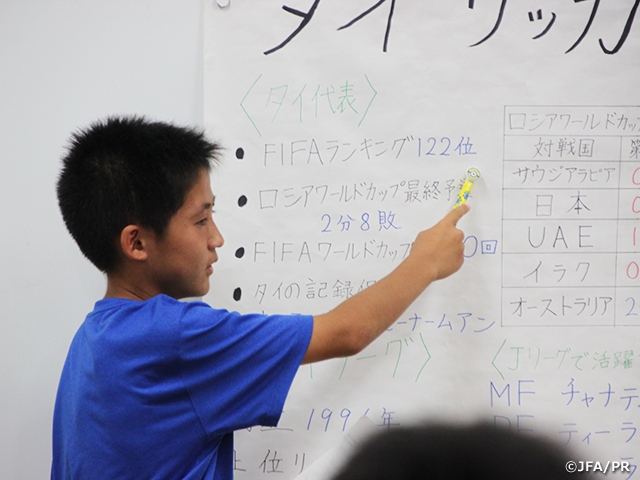 タイ サッカ
〈タイ代表〉
• FIFAランキング122位
• ロシアワールドカップ最終予
2分8敗
• FIFAワールドカップ
0回
• タイの記録保
ームアン
ーグ〉
199
年
上位リ
ロシアワールドカップ
対戦国
サウジアラビア 0
日本 0
UAE 1
イラク 0
オーストラリア 2
〈Jリーグで活躍
MF チャナティ
DF ティーラ
©JFA/PR